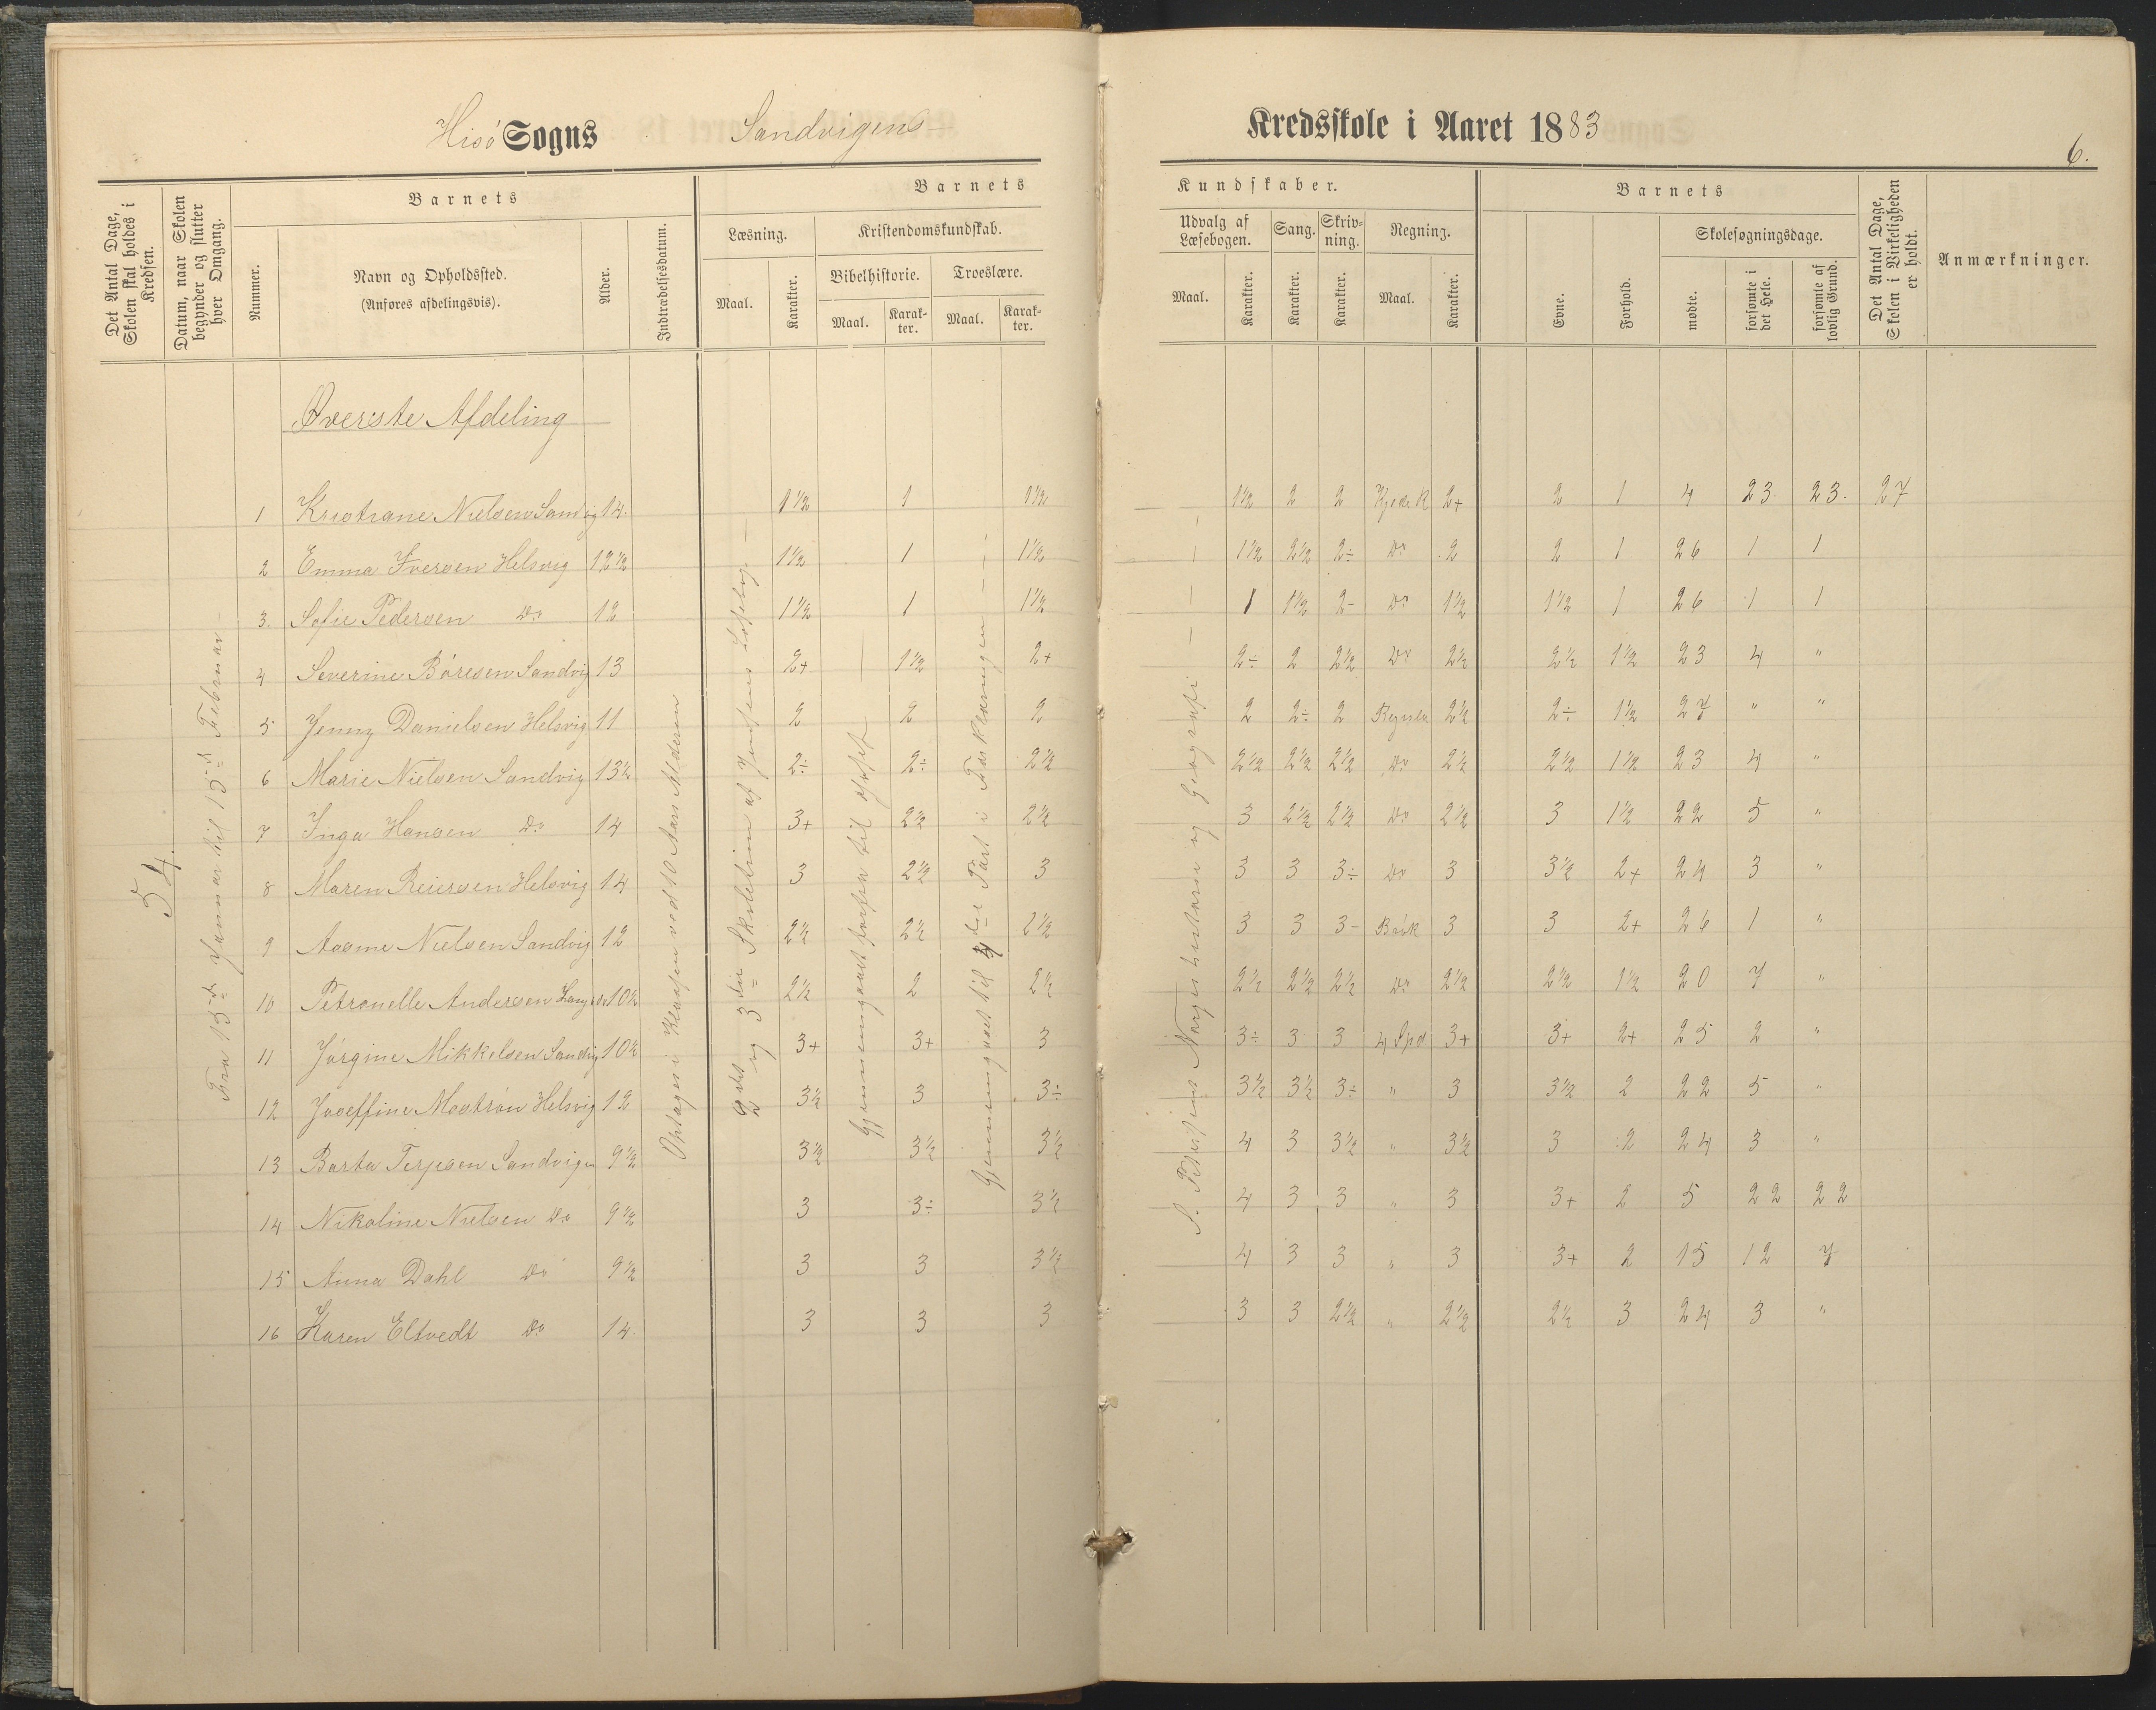 Hisø Sogns Sandvigens Kredsskole i Aaret 1883
6.
Det Antal Dage, Skolen skal holdes i Kredsen.
Datum, naar Skolen begynder og slutter hver Omgang.
Nummer.
Barnets
Navn og Opholdssted.
(Anføres afdelingsvis).
Alder.
Indtrædelsesdatum.
Barnets Kundskaber.
Læsning.
Maal.
Karakter.
Kristendomskundskab.
Bibelhistorie.
Maal.
Karakter.
Troeslære.
Maal.
Karakter.
Udvalg af Læsebogen.
Maal.
Karakter.
Sang.
Karakter.
Skrivning.
Karakter.
Regning.
Maal.
Karakter.
Barnets
Evne.
Forhold.
Skolesøgningsdage.
mødte.
forsømte i det Hele.
forsømte af lovlig Grund.
Det Antal Dage, Skolen i Virkeligheden er holdt.
Anmærkninger.
Øverste Afdeling
54.
Fra 15de Januar til 15de Februar
Optages i Klassen ved 10 Aars Alderen
2det og 3die Skoletrin af Jensens Læsebog
Gjennemgaaet forfra til
Gjennemgaaet til 4de Part i Forklaringen
S. Petersens Norgeshistorie og Geografi
1 Kristiane Nielsen Sandvig 14. 1½ 1 1½ 1½ 2 2 Kjede R 2+ 2 1 4 23 23. 27
2 Emma Iversen Helsvig 12½ 1½ 1 1½ 1½ 2½ 2÷ Do 2 2 1 26 1 1
3. Sofie Pedersen Do 12 1½ 1 1½ 1 1½ 2- Do 1½ 1½ 1 26 1 1
4 Severine Børesen Sandvig 13 2+ 1½ 2+ 2÷ 2 2½ Do 2½ 2½ 1½ 23 4 "
5 Jenny Danielsen Helsvig 11 2 2 2 2 2÷ 2 2½ 2÷ 1½ 27 " "
6 Marie Nielsen Sandvig 13½ 2÷ 2÷ 2½ 2½ 2½ 2½ Do 2½ 2½ 1½ 23 4 "
7 Inga Hansen Do 14 3+ 2½ 2½ 3 2½ 2½ Do 2½ 3 1½ 22 5 "
8 Maren Reiersen Helsvig 14 3 2½ 3 3 3 3÷ Do 3 3½ 2+ 24 3 "
9 Aasme Nielsen Sandvig 12 2½ 2½ 2½ 3 3 3- Brøk 3 3 2+ 26 1 "
10 Petronelle Andersen 10½ 2½ 2 2½ 2½ 2½ 2½ Do 2½ 2½ 1½ 20 7 "
11 Jørgine Mikkelsen Sandvig 10½ 3+ 3+ 3 3÷ 3 3 4 Spd 3+ 3+ 2+ 25 2 "
12 Joseffine Mostrøn Helsvig 12 3½ 3 3÷ 3½ 3½ 3÷ " 3 3½ 2 22 5 "
13 Barta Terjesen Sandvigen 9½ 3½ 3½ 3½ 4 3 3½ " 3½ 3 2 24 3 "
14 Nikoline Nielsen Do 9½ 3 3÷ 3½ 4 3 3 " 3 3+ 2 5 22 22
15 Anna Dahl Do 9½ 3 3 3½ 4 3 3 " 3 3+ 2 15 12 7
16 Karen Eltvedt Do 14. 3 3 3 3 3 2½ " 2½ 2½ 3 24 3 "